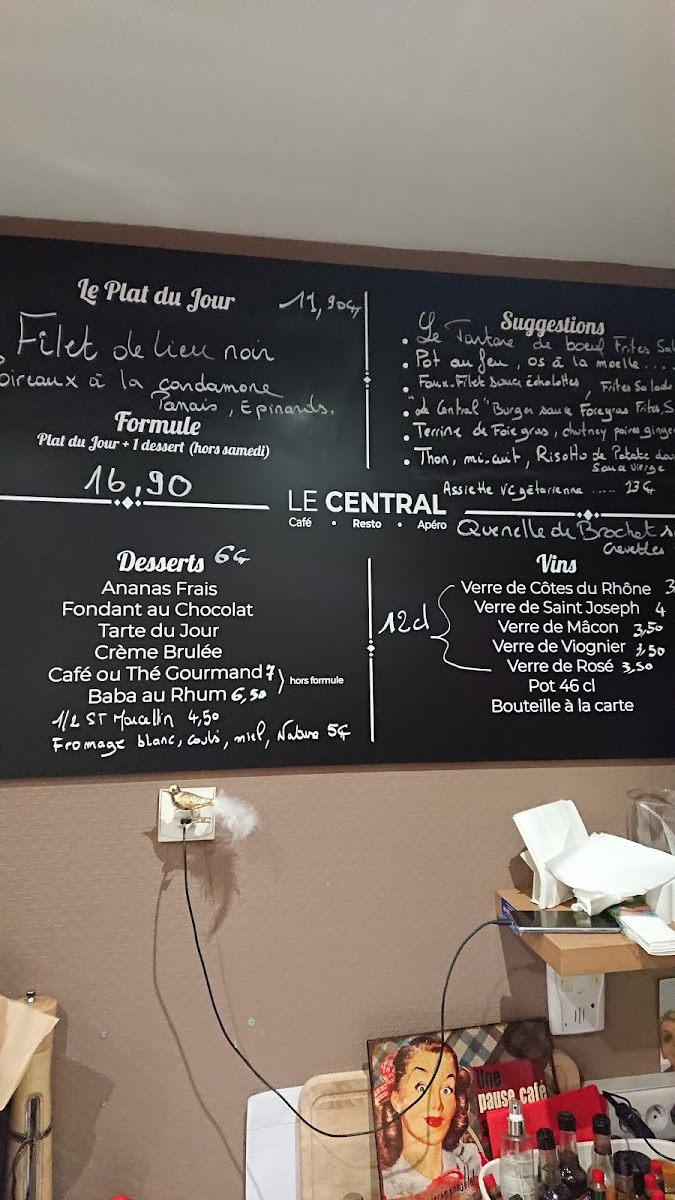 Le Plat du Jour 11,90€
Filet de lieu noir
Poireaux à la cardamone
Panais, Epinards.
Formule
Plat du Jour + 1 dessert (hors samedi)
16,90
Suggestions
• Le Tartare de boeuf Frites
• Pot au feu, os à la moelle....
• Faux-Filet sauce échalottes, Frites Salade
• "Le Central" Burger sauce Foie gras Frites
• Terrine de Foie gras, chutney poires
• Thon, mi-cuit, Risotto de Patate
Sauce vierge
Assiette végétarienne ..... 13€
Quenelle de Brochet
Crevettes
LE CENTRAL
Café • Resto • Apéro
Desserts 6€
Ananas Frais
Fondant au Chocolat
Tarte du Jour
Crème Brulée
Café ou Thé Gourmand 7
Baba au Rhum 6,50
hors formule
1/2 ST Marcellin 4,50
Fromage blanc, coulis, miel, Nature 5€
Vins
12cl
Verre de Côtes du Rhône
Verre de Saint Joseph 4
Verre de Mâcon 3,50
Verre de Viognier 3,50
Verre de Rosé 3,50
Pot 46 cl
Bouteille à la carte
Une
pause café